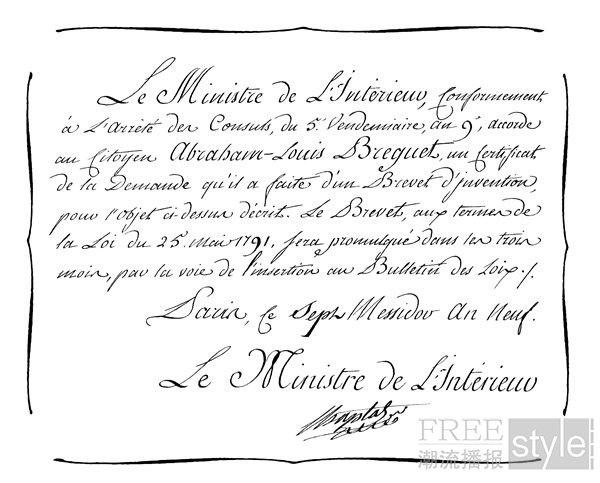 Le Ministre de L'Intérieur, Conformement
à L'Arrêté des Consuls, du 5. Vendemiaire, an 9e, accorde
au Citoyen Abraham-Louis Breguet, un Certificat
de la Demande qu'il a faite d'un Brevet d'invention,
pour l'objet ci-dessus décrit. Le Brevet, aux termes de
la Loi du 25. mai 1791, sera promulgué dans les trois
mois, par la voie de l'insertion au Bulletin des Loix./.
Paris, Ce Sept Messidor An Neuf.
Le Ministre de L'Intérieur
Chaptal
FREE
style
潮流播报